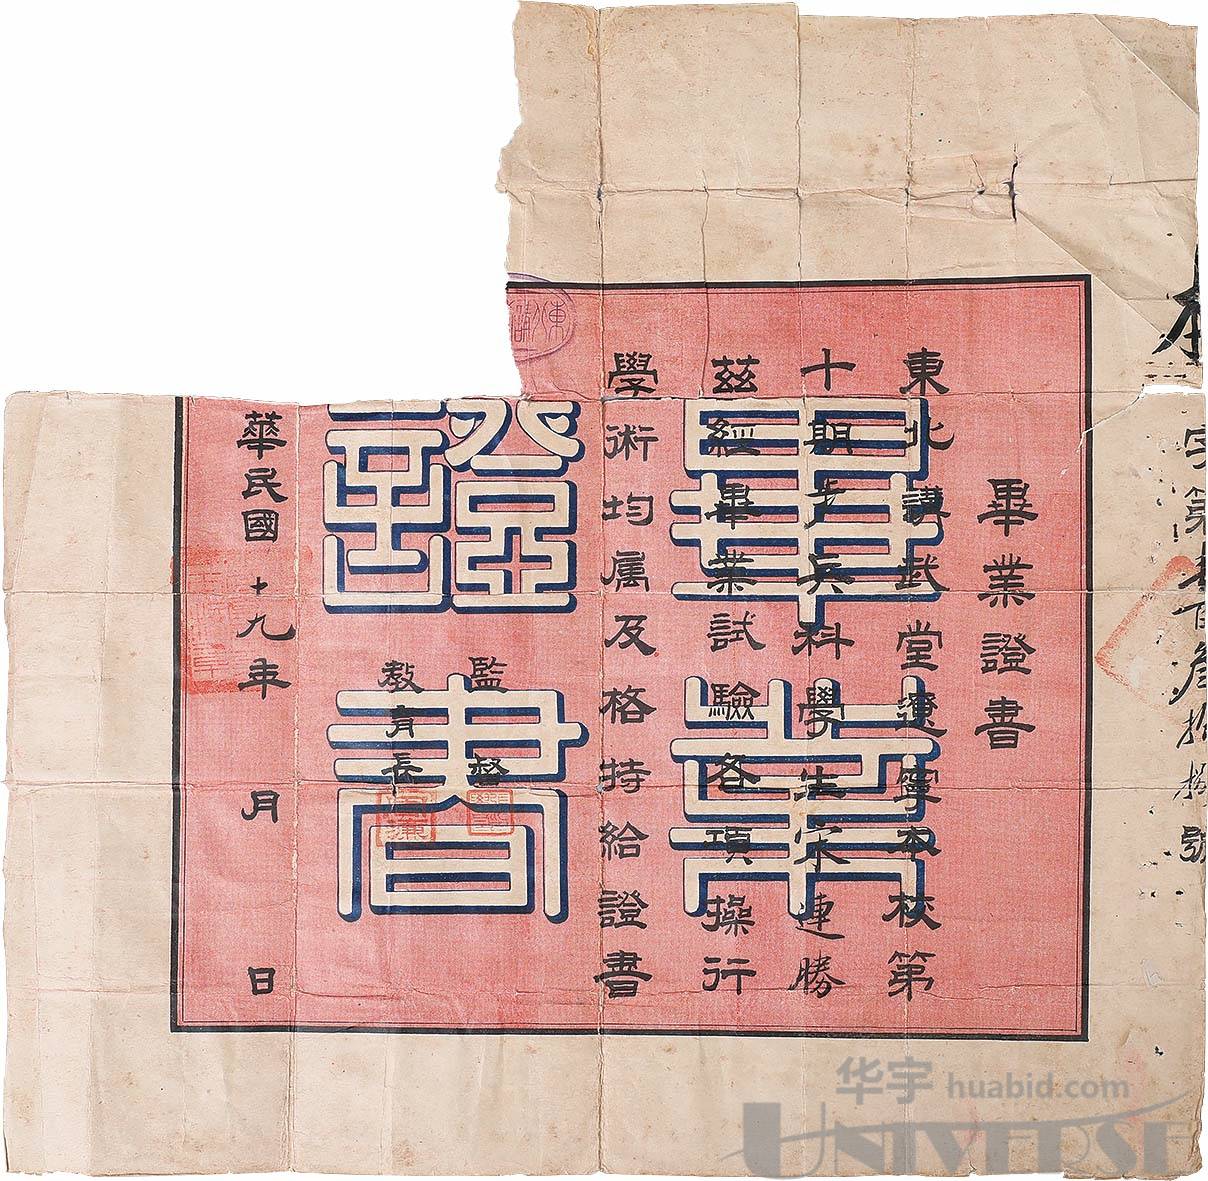 字第壹百叁拾捌號
畢業證書
東北講武堂遼寧本校第
十期步兵科學生宋連勝
茲經畢業試驗各項操行
學術均屬及格特給證書
監督
教育長
華民國十九年 月 日
畢業
證書
华宇 huabid.com
UNIVERSE